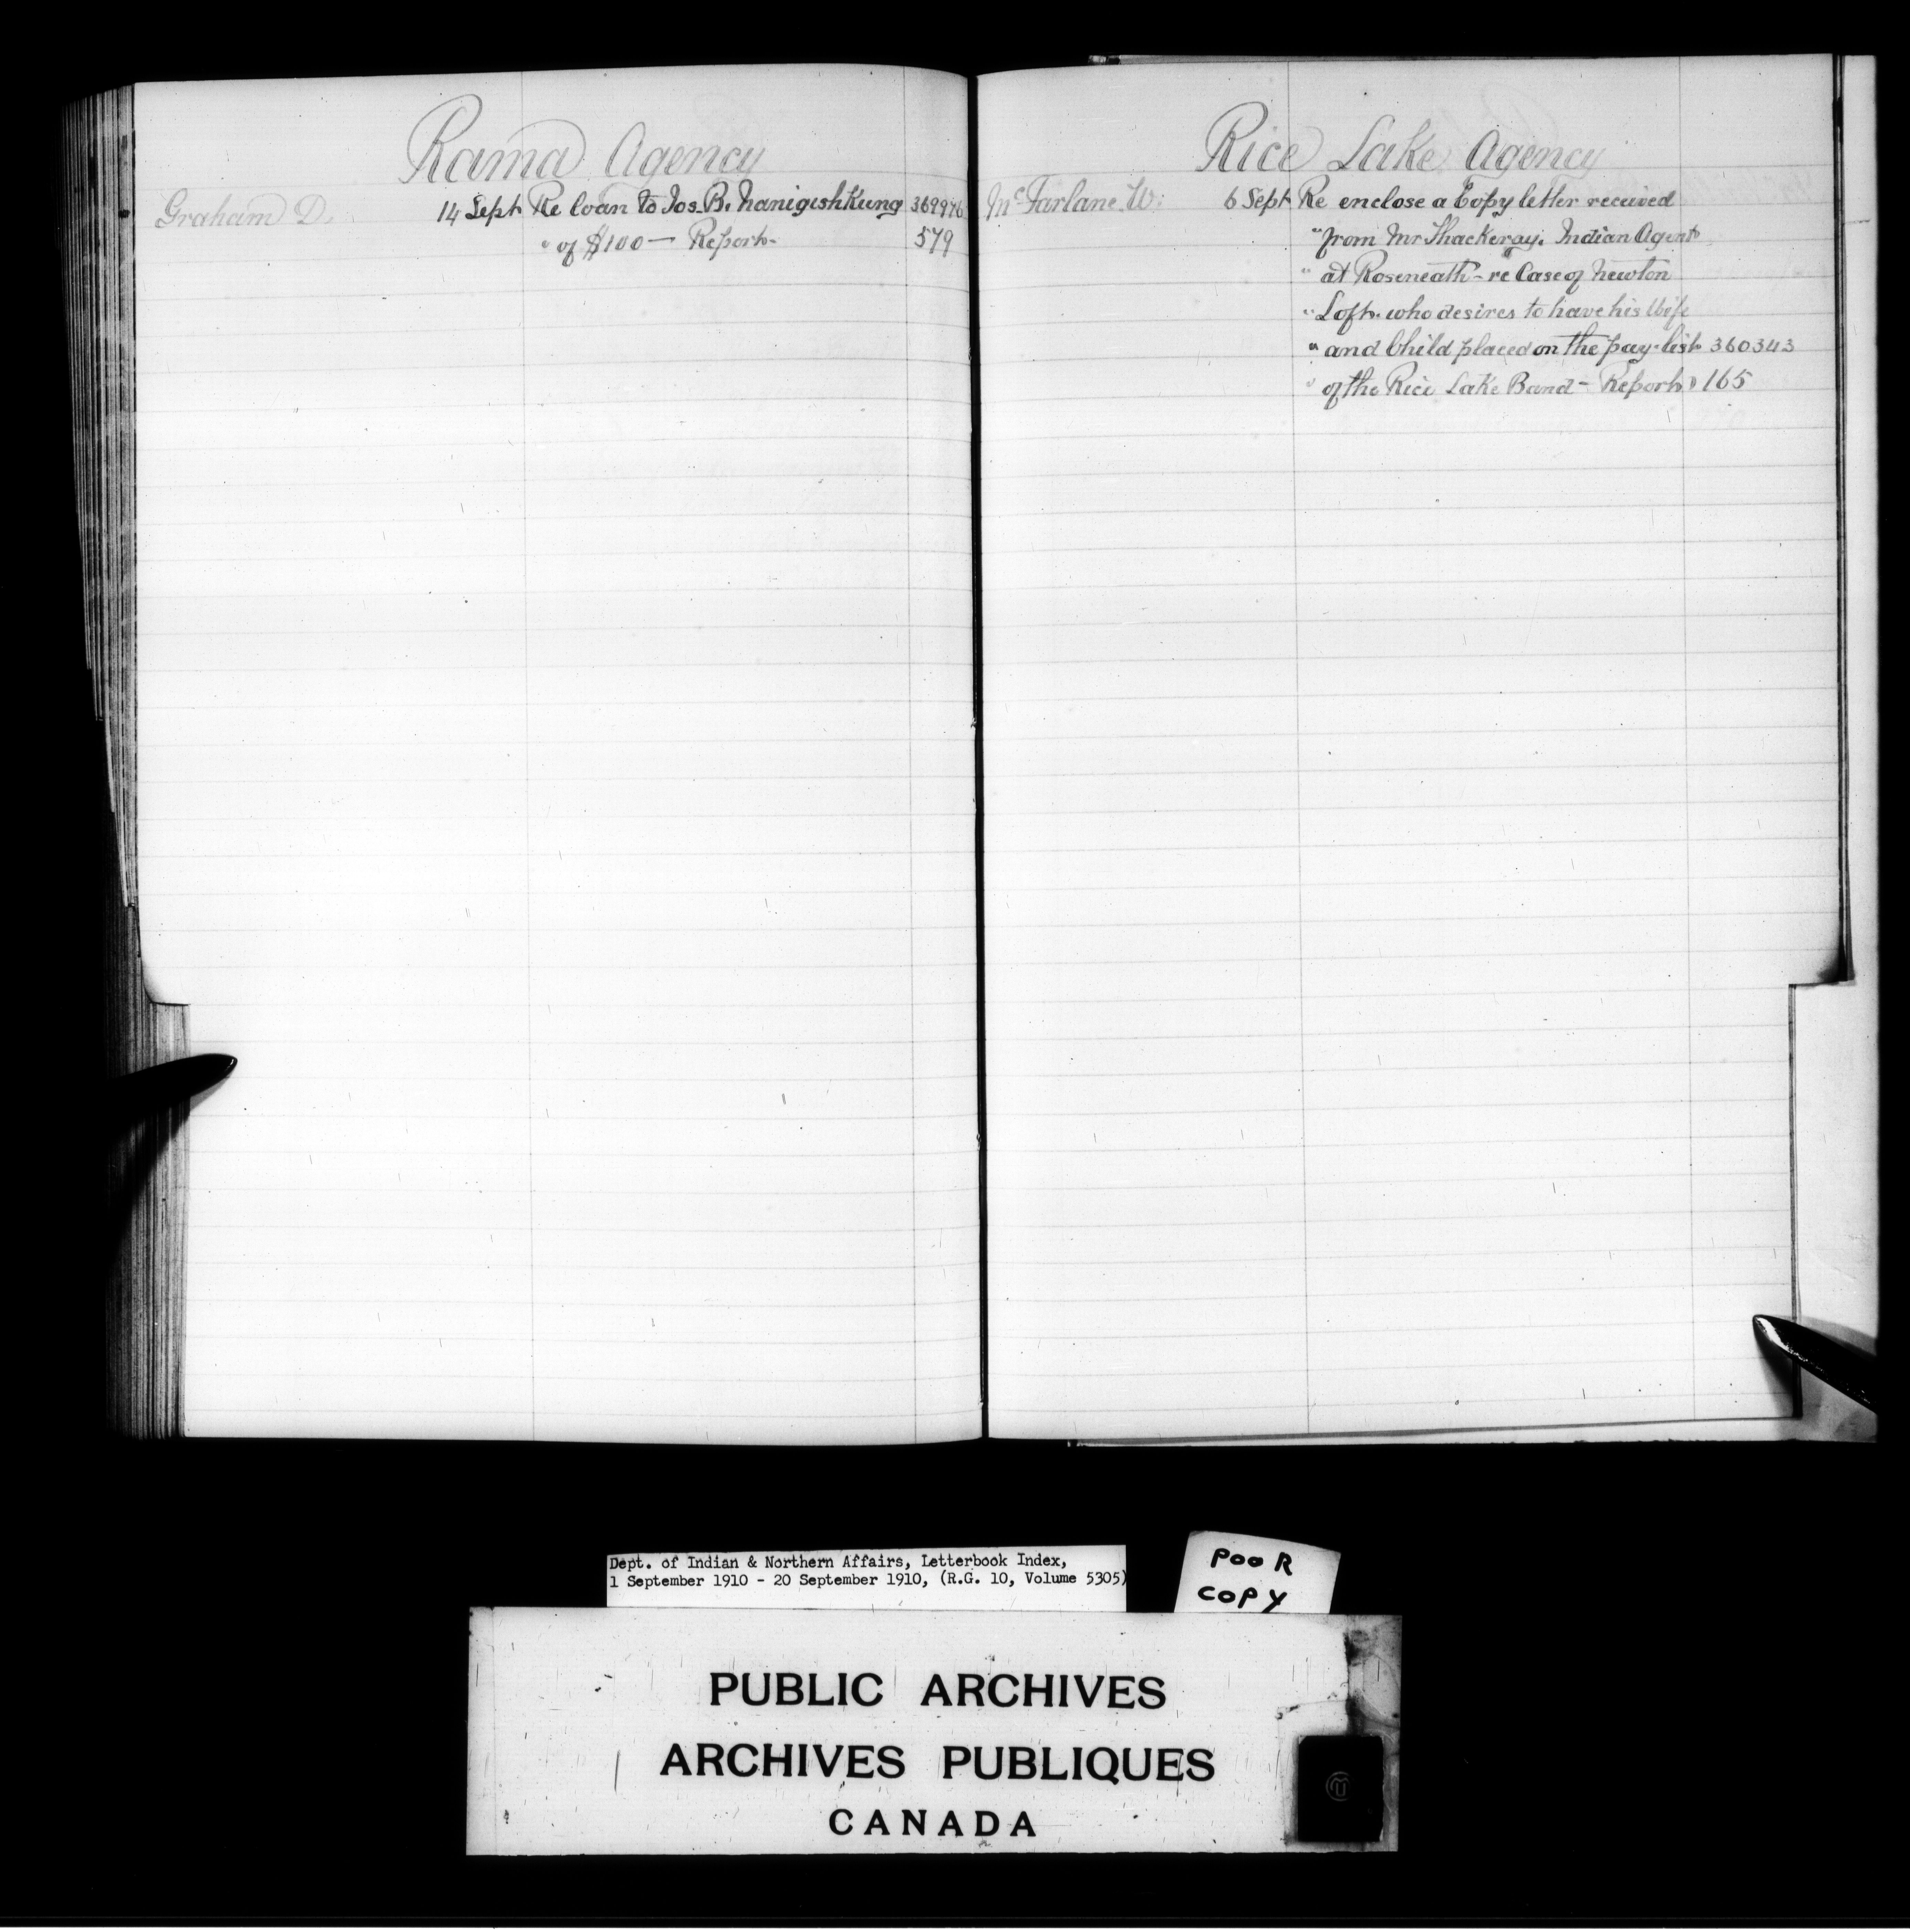 Rama Agency
Graham D. 14 Sept Re loan to Jos. B. Nanigishkung 369976
" of $100 — Report - 579
Rice Lake Agency
McFarlane W. 6 Sept Re enclose a Copy letter received
" from Mr Thackeray. Indian Agent
" at Roseneath - re Case of Newton
" Loft. who desires to have his Wife
" and Child placed on the pay-list 360343
" of the Rice Lake Band - Report 165
Dept. of Indian & Northern Affairs, Letterbook Index,
1 September 1910 - 20 September 1910, (R.G. 10, Volume 5305)
POOR
COPY
PUBLIC ARCHIVES
ARCHIVES PUBLIQUES
CANADA